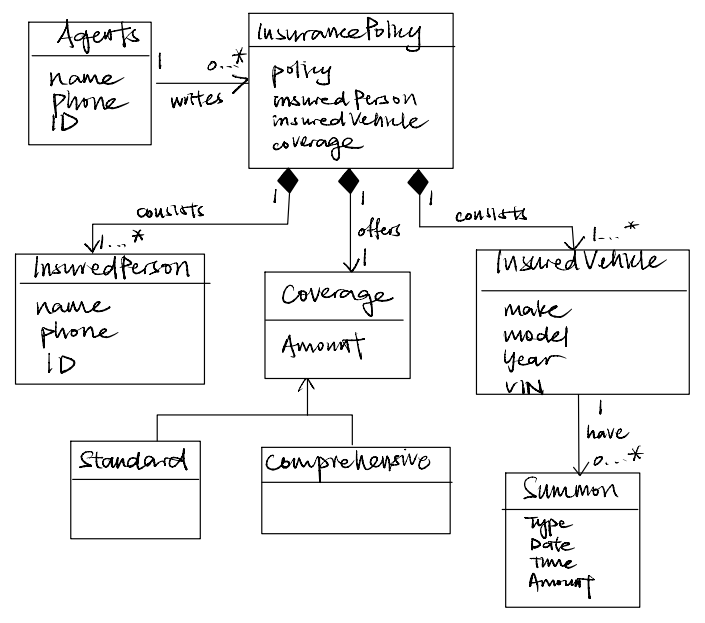 Agents
name
phone
ID
1
0...*
writes
InsurancePolicy
policy
insuredPerson
insuredVehicle
coverage
1
1
1
consists
offers
consists
1...*
1
1...*
InsuredPerson
name
phone
ID
Coverage
Amount
InsuredVehicle
make
model
year
VIN
1
have
0...*
Standard
Comprehensive
Summon
Type
Date
Time
Amount